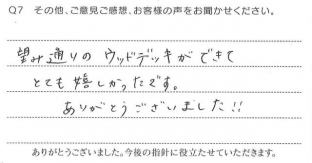 Q7 その他、ご意見ご感想、お客様の声をお聞かせください。
望み通りの ウッドデッキができて
とても嬉しかったです。
ありがとうございました!!
ありがとうございました。今後の指針に役立たせていただきます。